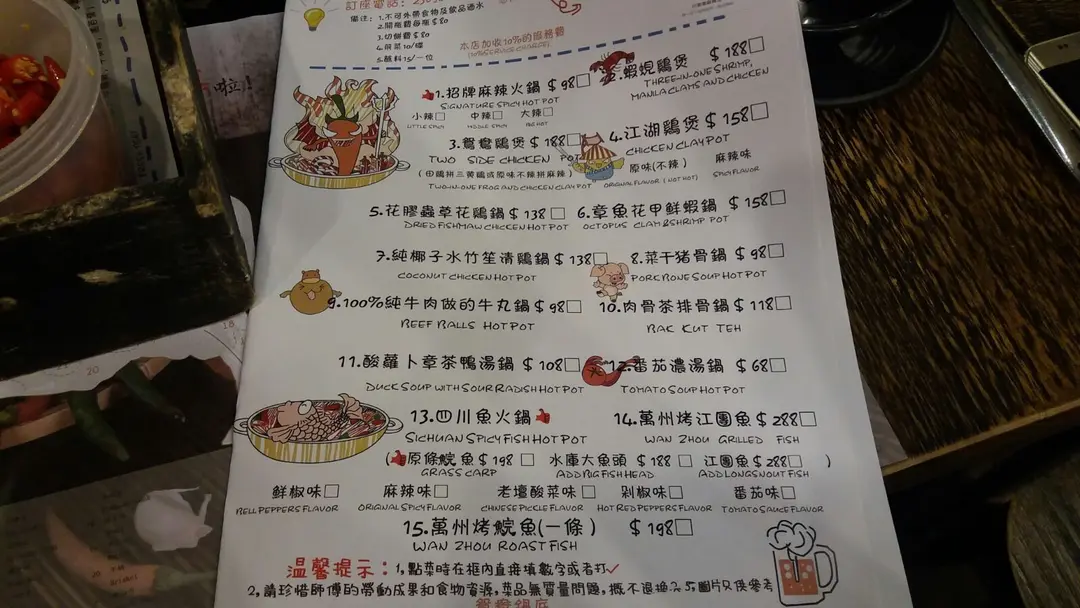 訂座電話：
備注：1.不可外帶食物及飲品酒水
2.開瓶費每瓶$80
3.切餅費$80
4.前菜10/碟
5.醬料15/一位
本店加收10%的服務費
(10%SERVICE CHARGE)
1.招牌麻辣火鍋 $98□
SIGNATURE SPICY HOT POT
小辣□ 中辣□ 大辣□
LITTLE SPICY MIDDLE SPICY BIG HOT
2.蝦蜆鷄煲 $188□
THREE-IN-ONE SHRIMP,
MANILA CLAMS AND CHICKEN
3.鴛鴦鷄煲 $188□
TWO SIDE CHICKEN POT
(田鷄拼三黄鷄或原味不辣拼麻辣)
TWO-IN-ONE FROG AND CHICKEN CLAY POT
4.江湖鷄煲 $158□
CHICKEN CLAY POT
原味(不辣) 麻辣味
ORIGINAL FLAVOR (NOT HOT) SPICY FLAVOR
5.花膠蟲草花鷄鍋 $138□
DRIED FISH MAW CHICKEN HOT POT
6.章魚花甲鮮蝦鍋 $158□
OCTOPUS CLAM & SHRIMP POT
7.純椰子水竹笙清鷄鍋 $138□
COCONUT CHICKEN HOT POT
8.菜干猪骨鍋 $98□
PORK BONE SOUP HOT POT
9.100%純牛肉做的牛丸鍋 $98□
BEEF BALLS HOT POT
10.肉骨茶排骨鍋 $118□
BAK KUT TEH
11.酸蘿卜章茶鴨湯鍋 $108□
DUCK SOUP WITH SOUR RADISH HOT POT
12.番茄濃湯鍋 $68□
TOMATO SOUP HOT POT
13.四川魚火鍋
SICHUAN SPICY FISH HOT POT
14.萬州烤江團魚 $288□
WAN ZHOU GRILLED FISH
(原條鯇魚 $198□ 水庫大魚頭 $188□ 江團魚 $288□)
GRASS CARP ADD BIG FISH HEAD ADD LONG SNOUT FISH
鮮椒味□ 麻辣味□ 老壇酸菜味□ 剁椒味□ 番茄味□
BELL PEPPERS FLAVOR ORIGNAL SPICY FLAVOR CHINESE PICKLE FLAVOR HOT RED PEPPERS FLAVOR TOMATO SAUCE FLAVOR
15.萬州烤鯇魚(一條) $198□
WAN ZHOU ROAST FISH
溫馨提示：1,點菜時在框内直接填數字或者打✓
2,請珍惜師傅的勞動成果和食物資源,菜品無質量問題,概不退換
圖片只供參考
鴛鴦鍋底
啦!